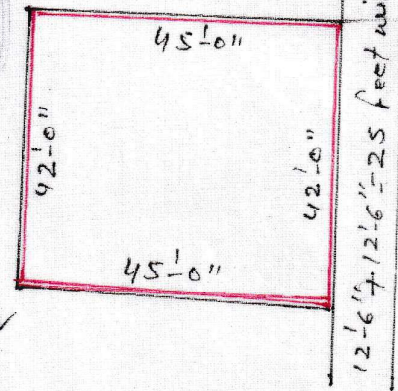 45'-0"
42'-0"
42'-0"
45'-0"
12'-6"+12'-6"=25 feet